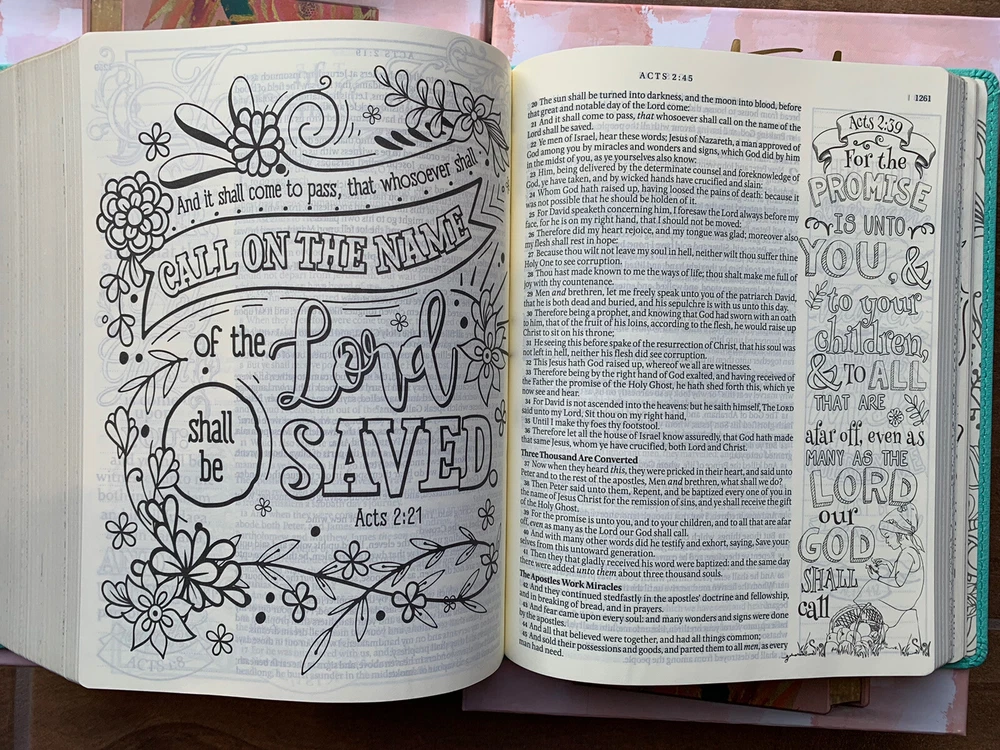 And it shall come to pass, that whosoever shall
CALL ON THE NAME
of the Lord
shall
be
SAVED
Acts 2:21
ACTS 2:45
1261
20 The sun shall be turned into darkness, and the moon into blood, before
that great and notable day of the Lord come:
21 And it shall come to pass, that whosoever shall call on the name of the
Lord shall be saved.
22 Ye men of Israel, hear these words; Jesus of Nazareth, a man approved of
God among you by miracles and wonders and signs, which God did by him
in the midst of you, as ye yourselves also know:
23 Him, being delivered by the determinate counsel and foreknowledge of
God, ye have taken, and by wicked hands have crucified and slain:
24 Whom God hath raised up, having loosed the pains of death: because it
was not possible that he should be holden of it.
25 For David speaketh concerning him, I foresaw the Lord always before my
face, for he is on my right hand, that I should not be moved:
26 Therefore did my heart rejoice, and my tongue was glad; moreover also
my flesh shall rest in hope:
27 Because thou wilt not leave my soul in hell, neither wilt thou suffer thine
Holy One to see corruption.
28 Thou hast made known to me the ways of life; thou shalt make me full of
joy with thy countenance.
29 Men and brethren, let me freely speak unto you of the patriarch David,
that he is both dead and buried, and his sepulchre is with us unto this day.
30 Therefore being a prophet, and knowing that God had sworn with an oath
to him, that of the fruit of his loins, according to the flesh, he would raise up
Christ to sit on his throne;
31 He seeing this before spake of the resurrection of Christ, that his soul was
not left in hell, neither his flesh did see corruption.
32 This Jesus hath God raised up, whereof we all are witnesses.
33 Therefore being by the right hand of God exalted, and having received of
the Father the promise of the Holy Ghost, he hath shed forth this, which ye
now see and hear.
34 For David is not ascended into the heavens: but he saith himself, The LORD
said unto my Lord, Sit thou on my right hand,
35 Until I make thy foes thy footstool.
36 Therefore let all the house of Israel know assuredly, that God hath made
that same Jesus, whom ye have crucified, both Lord and Christ.
Three Thousand Are Converted
37 Now when they heard this, they were pricked in their heart, and said unto
Peter and to the rest of the apostles, Men and brethren, what shall we do?
38 Then Peter said unto them, Repent, and be baptized every one of you in
the name of Jesus Christ for the remission of sins, and ye shall receive the gift
of the Holy Ghost.
39 For the promise is unto you, and to your children, and to all that are afar
off, even as many as the Lord our God shall call.
40 And with many other words did he testify and exhort, saying, Save your-
selves from this untoward generation.
41 Then they that gladly received his word were baptized: and the same day
there were added unto them about three thousand souls.
The Apostles Work Miracles
42 And they continued stedfastly in the apostles' doctrine and fellowship,
and in breaking of bread, and in prayers.
43 And fear came upon every soul: and many wonders and signs were done
by the apostles.
44 And all that believed were together, and had all things common;
45 And sold their possessions and goods, and parted them to all men, as every
man had need.
Acts 2:39
For the
PROMISE
IS UNTO
YOU, &
to your
children,
& TO ALL
THAT ARE
afar off, even as
MANY AS THE
LORD
our
GOD
SHALL
call